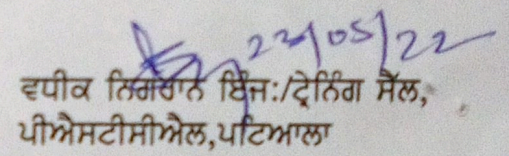 23/05/22
ਵਧੀਕ ਨਿਗਰਾਨ ਇੰਜ:/ਟ੍ਰੇਨਿੰਗ ਸੈੱਲ,
ਪੀਐਸਟੀਸੀਐਲ,ਪਟਿਆਲਾ